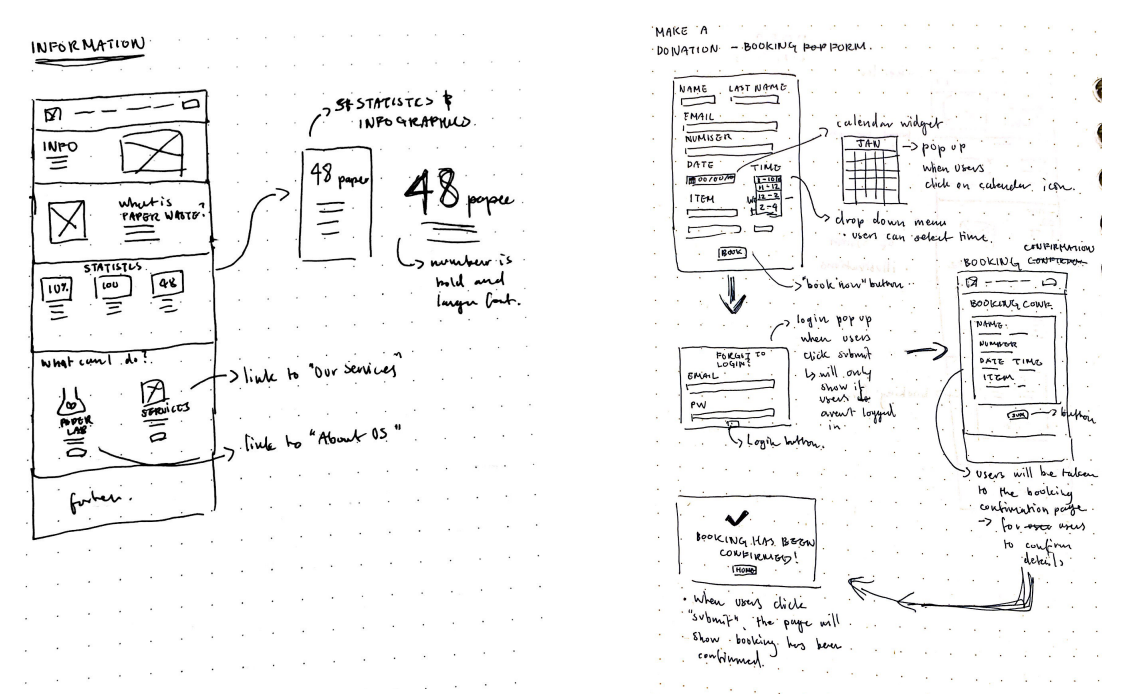 INFORMATION
INFO
what is
PAPER WASTE?
STATISTICS
10%
100
48
what can I do?
PAPER
LAB
SERVICES
footer.
STATISTCS &
INFOGRAPHICS.
48 paper
48 paper
number is
bold and
larger font.
link to "Our Services"
link to "About US"
MAKE A
DONATION - BOOKING FORM.
NAME LAST NAME
EMAIL
NUMBER
DATE TIME
00/00/00
11-12
12-2
2-4
ITEM
BOOK
calendar widget
JAN
pop up
when users
click on calendar icon.
drop down menu
• users can select time.
"book now" button
login pop up
when users
click submit
will only
show if
users
arent logged
in.
FORGOT TO
LOGIN?
EMAIL
PW
Login button.
CONFIRMATION
BOOKING
BOOKING CONF.
NAME
NUMBER
DATE TIME
ITEM
SUB
button
users will be taken
to the booking
confirmation page.
for users
to confirm
details
BOOKING HAS BEEN
CONFIRMED!
HOME
• when users click
"submit", the page will
show booking has been
confirmed.